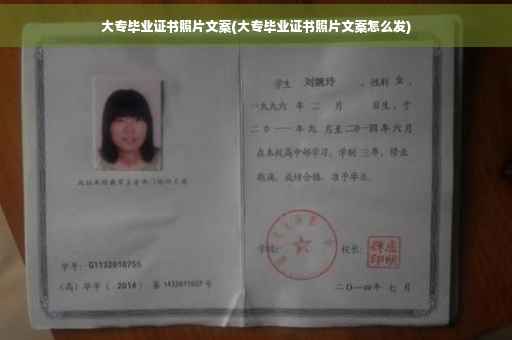 大专毕业证书照片文案(大专毕业证书照片文案怎么发)
学生 刘婉玲 ,性别 女 ,
一九九六 年 二 月 日生,于
二〇一一年九 月至二〇一四年六月
在本校高中部学习,学制 三年,修业
期满,成绩合格,准予毕业。
学号: G1132010755
(高)毕字( 2014 )第 1432011027 号
学校:
校长:
二〇一四年 七 月